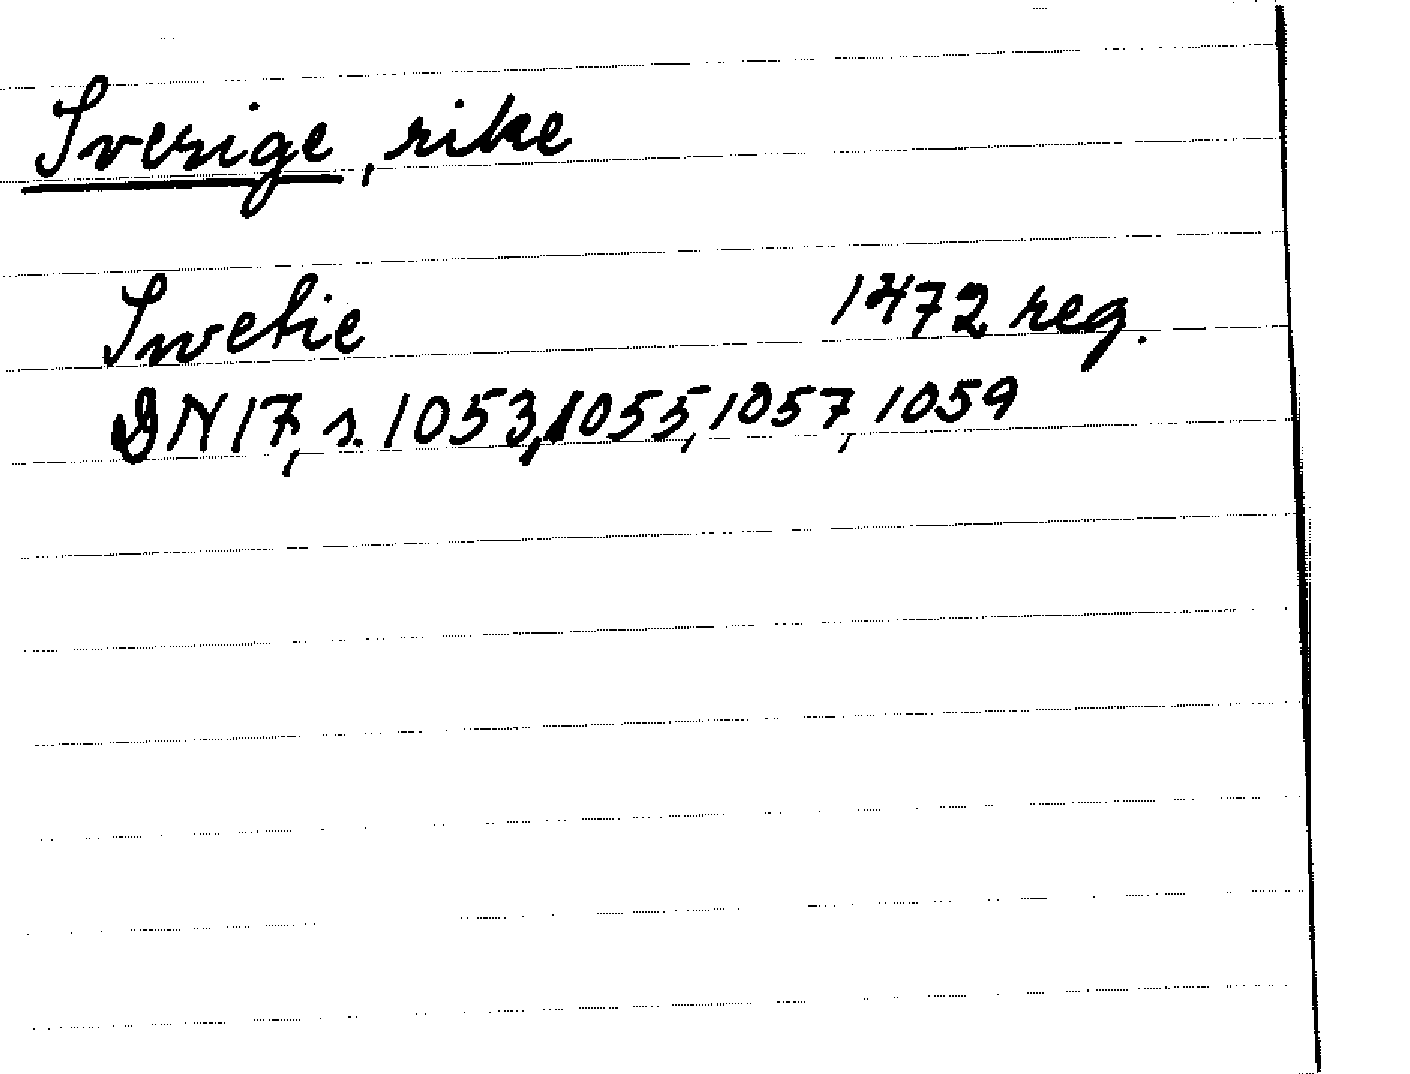 Sverige, rike
Swetie 1472 reg.
DN 17, s. 1053, 1055, 1057, 1059